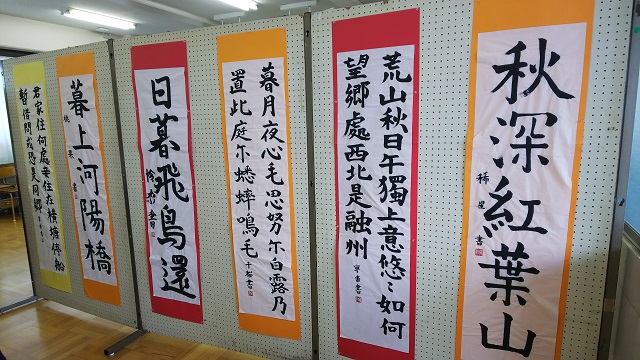 秋深紅葉山
稀星書
荒山秋日午獨上意悠〻如何
望鄉處西北是融州
暮月夜心毛思努尓白露乃
置此庭尓蟋蟀鳴毛
千石書
日暮飛鳥還
暮上河陽橋
君家住何處妾住在橫塘停船
暫借問或恐是同鄉